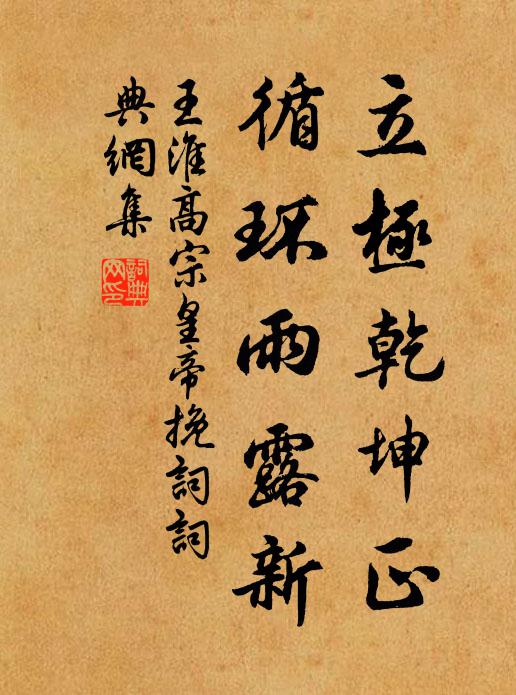 立極乾坤正
循环雨露新
王淮高宗皇帝挽詞詞
典網集
詞典网印